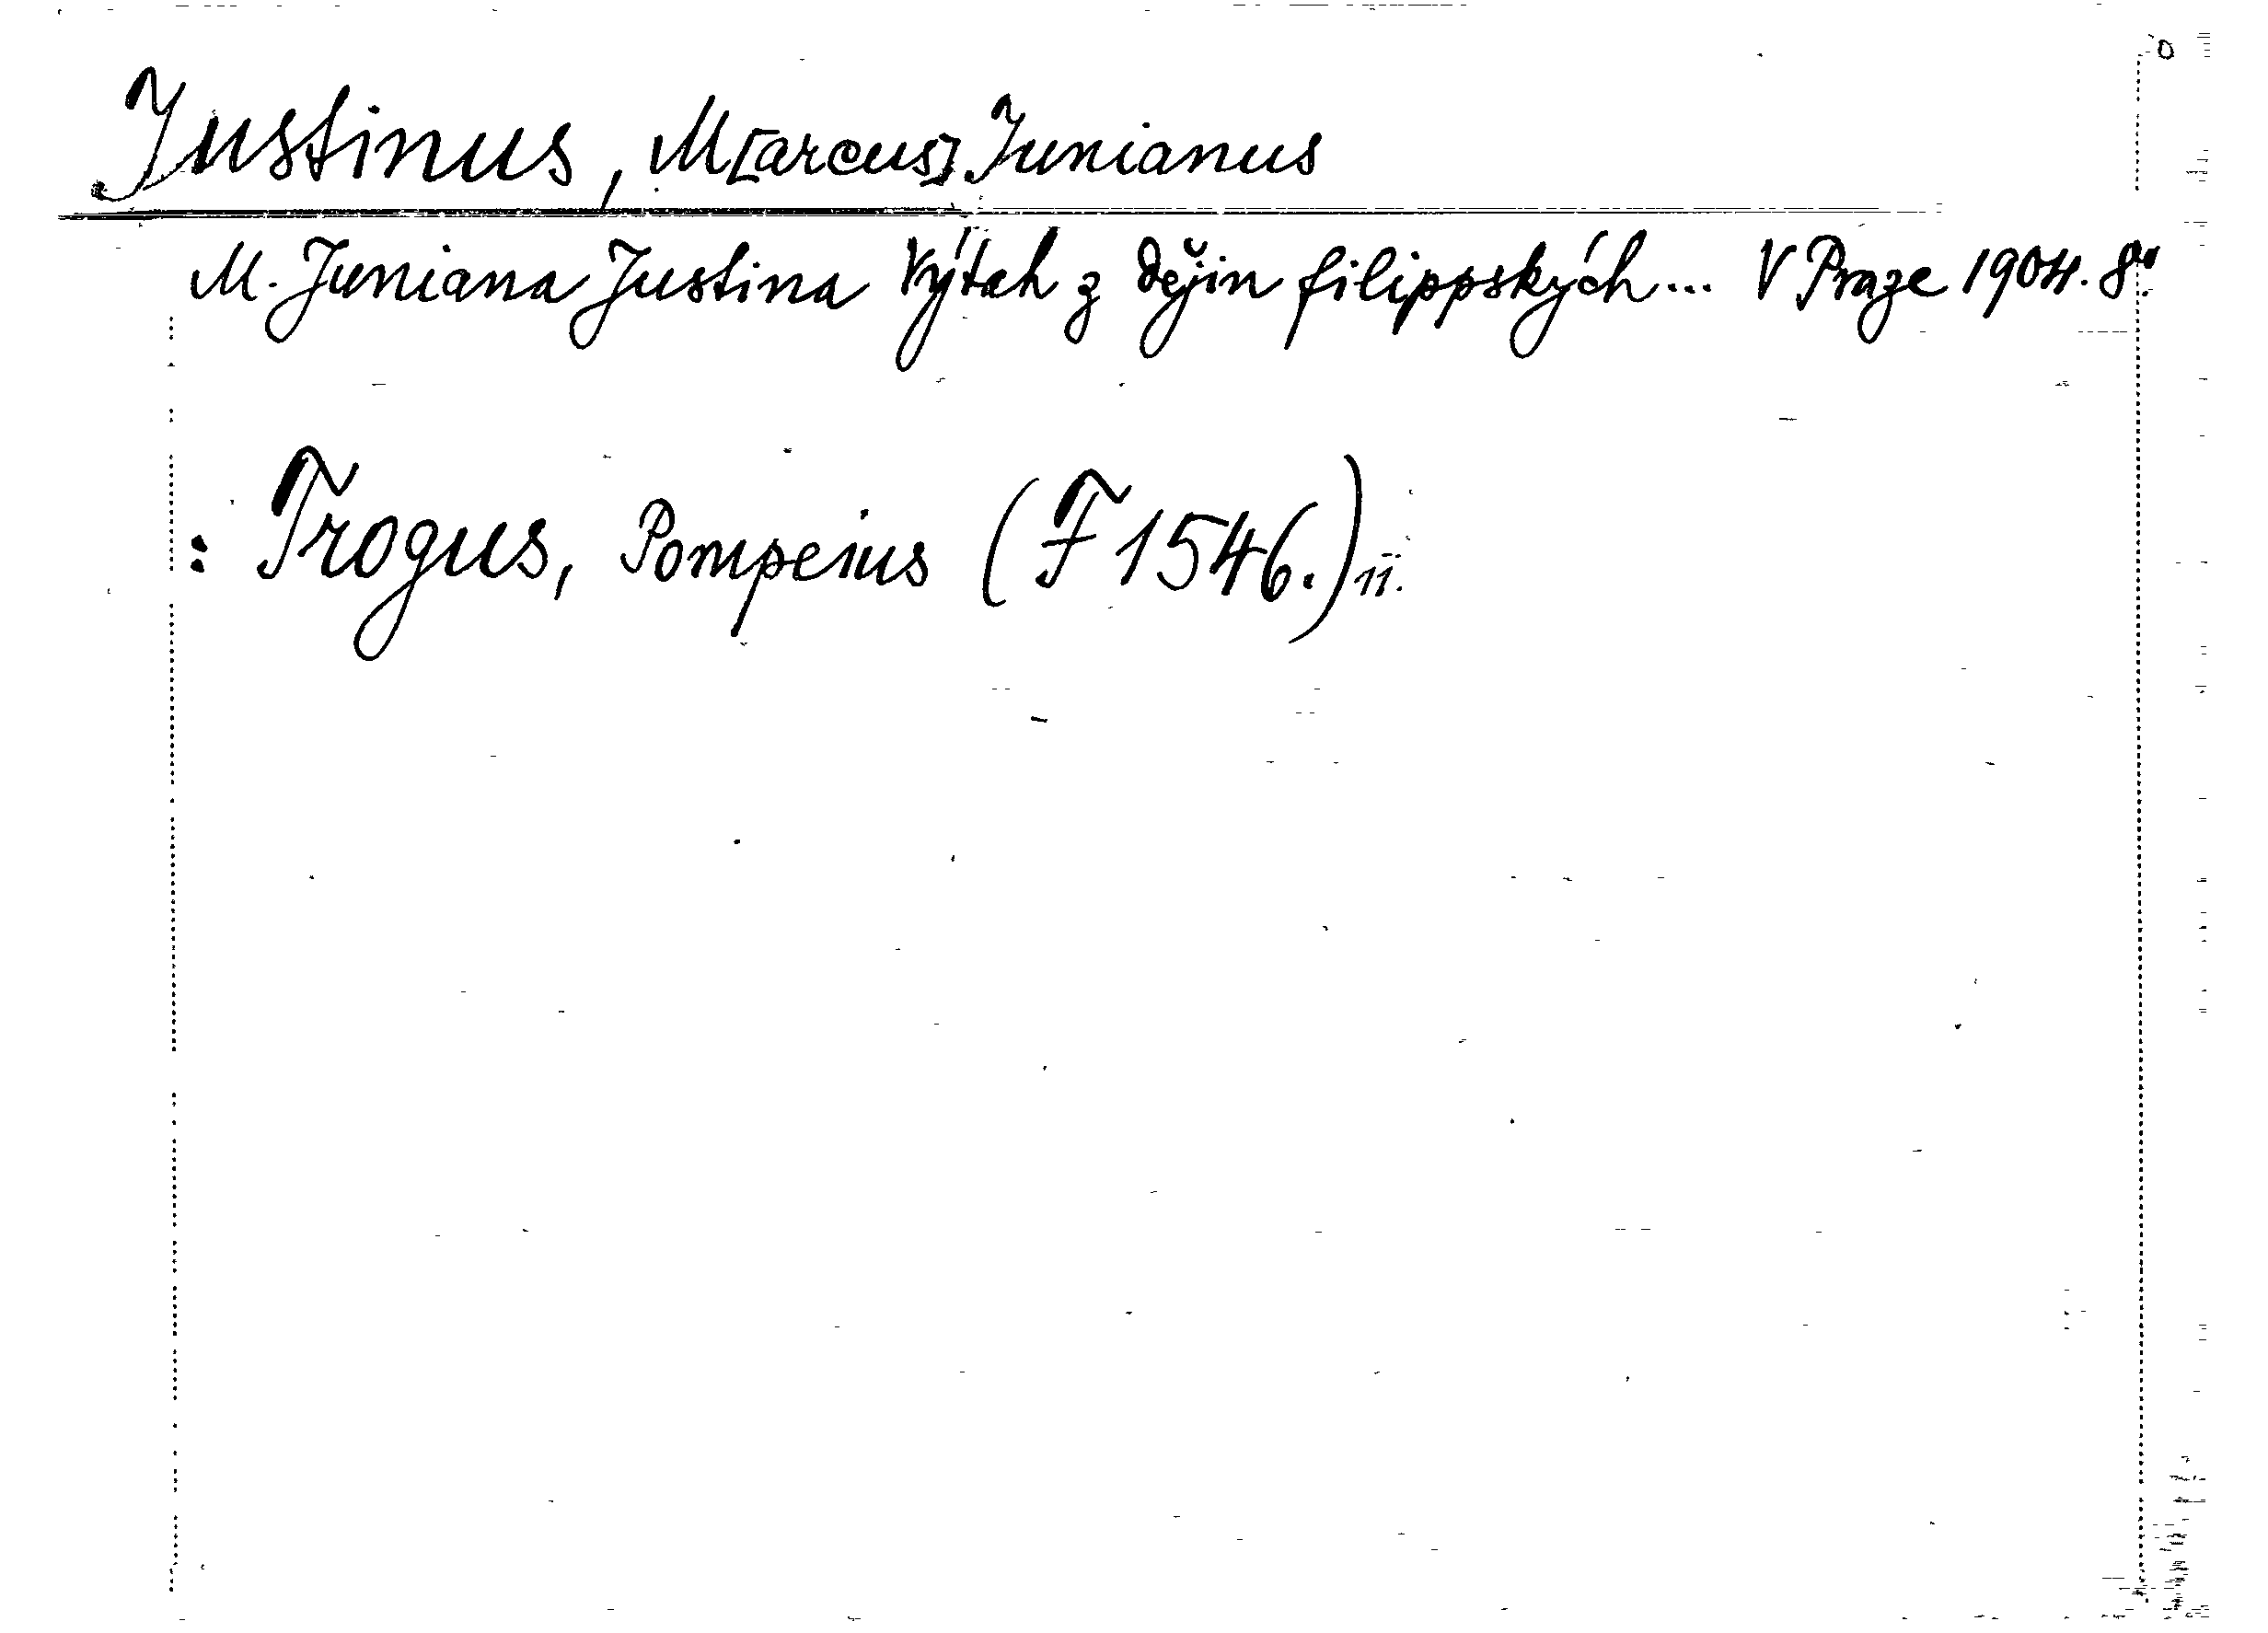 Justinus, M[arcus] Junianus
M. Juniana Justina Výtah z dějin filippských... V Praze 1904. 8°.
: Trogus, Pompeius (F 1546.) 11.